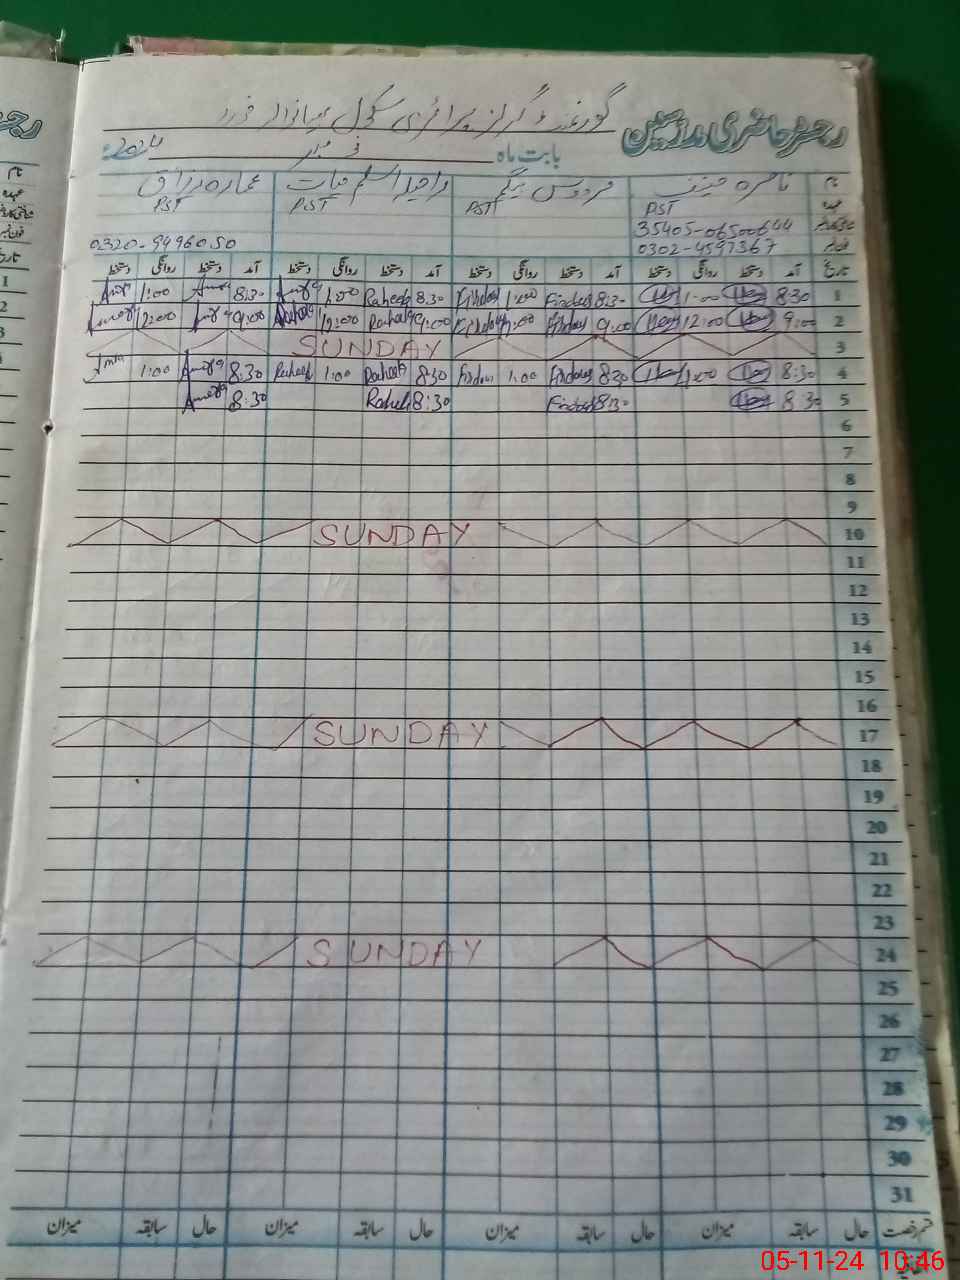 رجسٹر حاضری مدرسین گورنمنٹ گرلز پرائمری سکول
بابت ماه نومبر 2024ء
نام ناصره فردوس بیگم راحیلہ اسلم حیات عماره رزاق
عہدہ PST PST PST PST
35405-06500644
0302-4597367 0320-9496050
تاریخ آمد دستخط روانگی دستخط آمد دستخط روانگی دستخط آمد دستخط روانگی دستخط آمد دستخط روانگی دستخط
1 8:30 1:00 8:30 Firdous 1:00 Firdous 8:30 Raheela 1:00 8:30 1:00
2 9:00 12:00 9:00 Firdous 12:00 Firdous 9:00 Raheela 12:00 Raheela 9:00 12:00
3 SUNDAY
4 8:30 1:00 8:30 Firdous 1:00 Firdous 8:30 Raheela 1:00 Raheela 8:30 1:00
5 8:30 8:30 Firdous 8:30 Raheela 8:30
6
7
8
9
10 SUNDAY
11
12
13
14
15
16
17 SUNDAY
18
19
20
21
22
23
24 SUNDAY
25
26
27
28
29
30
31
قسم رخصت حال سابقہ میزان حال سابقہ میزان حال سابقہ میزان حال سابقہ میزان
05-11-24 10:46